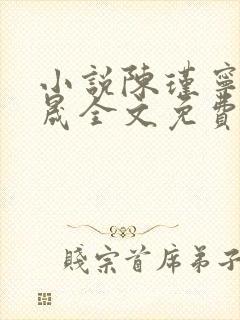 小説陳瑾寧
晟全文免費
賤宗首席弟子